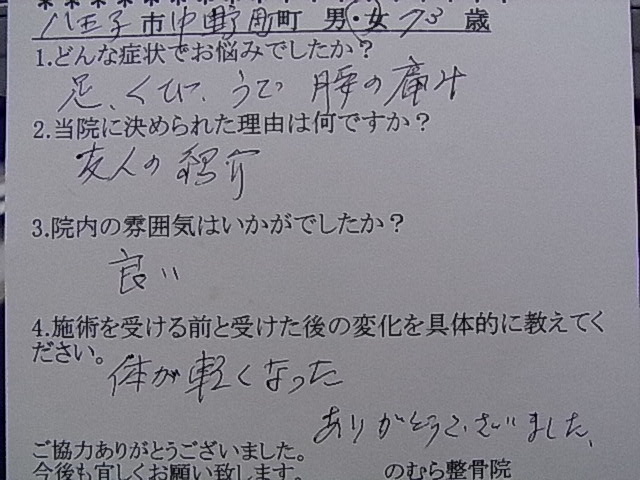 ＊＊＊＊＊＊＊＊＊＊＊＊＊＊＊＊＊＊
八王子市中野町町 男・女 73 歳
1.どんな症状でお悩みでしたか？
足、くび、うで 腰の痛み
2.当院に決められた理由は何ですか？
友人の紹介
3.院内の雰囲気はいかがでしたか？
良い
4.施術を受ける前と受けた後の変化を具体的に教えてく
ださい。
体が軽くなった
ありがとうございました、
ご協力ありがとうございました。
今後も宜しくお願い致します。 のむら整骨院